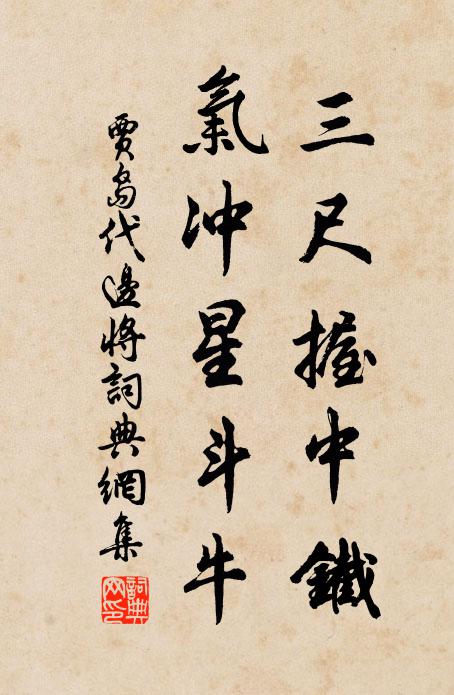 三尺握中鐵
氣冲星斗牛
賈島代邊將詞典網集
詞典网印